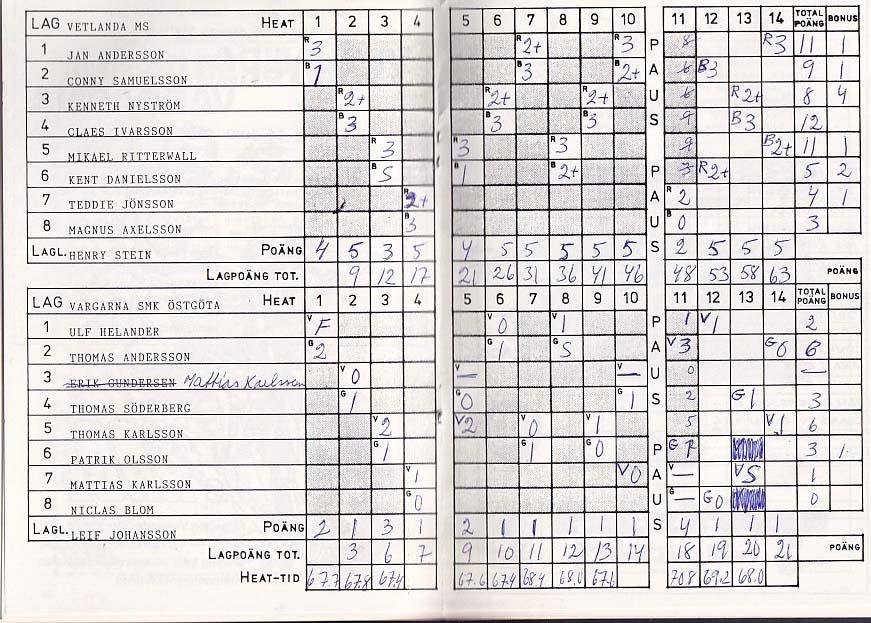 LAG VETLANDA MS HEAT 1 2 3 4 5 6 7 8 9 10 11 12 13 14 TOTAL POÄNG BONUS
1 JAN ANDERSSON R3 R2+ R3 8 R3 11 1
2 CONNY SAMUELSSON B1 B3 B2+ 6 B3 9 1
3 KENNETH NYSTRÖM R2+ R2+ R2+ 6 R2+ 8 4
4 CLAES IVARSSON B3 B3 B3 9 B3 12
5 MIKAEL RITTERWALL R3 R3 R3 9 B2+ 11 1
6 KENT DANIELSSON B S B1 B2+ 3 R2+ 5 2
7 TEDDIE JÖNSSON R2+ R2 4 1
8 MAGNUS AXELSSON B3 B0 3
LAGL. HENRY STEIN POÄNG 4 5 3 5 4 5 5 5 5 5 2 5 5 5
LAGPOÄNG TOT. 9 12 17 21 26 31 36 41 46 48 53 58 63 POÄNG
PAUS PAUS
LAG VARGARNA SMK ÖSTGÖTA HEAT 1 2 3 4 5 6 7 8 9 10 11 12 13 14 TOTAL POÄNG BONUS
1 ULF HELANDER V F V0 V1 1 V1 2
2 THOMAS ANDERSSON G2 G1 G S V3 G0 6
3 ERIK GUNDERSEN Mattias Karlsson V0 V— V— 0 —
4 THOMAS SÖDERBERG G1 G0 G1 2 G1 3
5 THOMAS KARLSSON V2 V2 V0 V1 5 V1 6
6 PATRIK OLSSON G1 G1 G0 G 3 1
7 MATTIAS KARLSSON V1 V0 V— V S 1
8 NICLAS BLOM G0 G— G0 0
LAGL. LEIF JOHANSSON POÄNG 2 1 3 1 2 1 1 1 1 1 4 1 1 1
LAGPOÄNG TOT. 3 6 7 9 10 11 12 13 14 18 19 20 21 POÄNG
HEAT-TID 67.7 67.8 67.4 67.6 67.4 68.4 68.0 67.6 70.8 69.2 68.0
PAUS PAUS